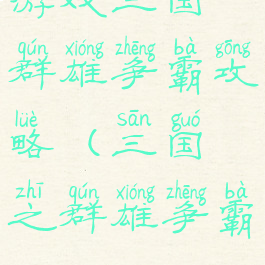 游戏三国
qún xióng zhēng bà gōng
群雄争霸攻
lüè sān guó
略（三国
zhī qún xióng zhēng bà
之群雄争霸